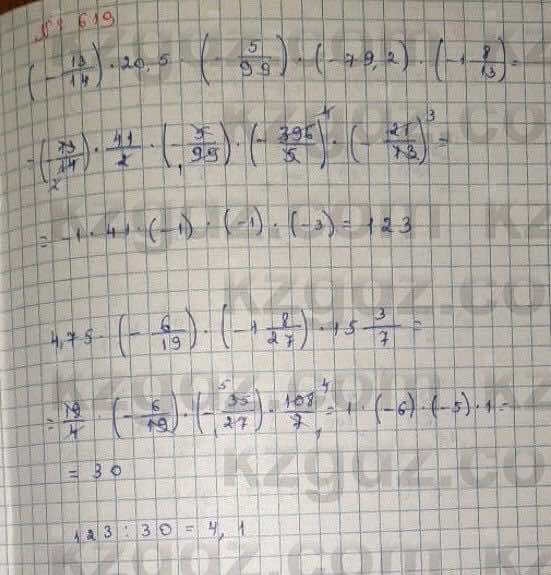 № 619
(-13/14) · 20,5 · (-5/99) · (-79,2) · (-1 8/13) =
= (-13/14) · 41/2 · (-5/99) · (-396/5) · (-21/13) =
= -1 · 41 · (-1) · (-1) · (-3) = 123
4,75 · (-6/19) · (-1 8/27) · 15 3/7 =
= 19/4 · (-6/19) · (-35/27) · 108/7 = 1 · (-6) · (-5) · 1 =
= 30
123 : 30 = 4,1